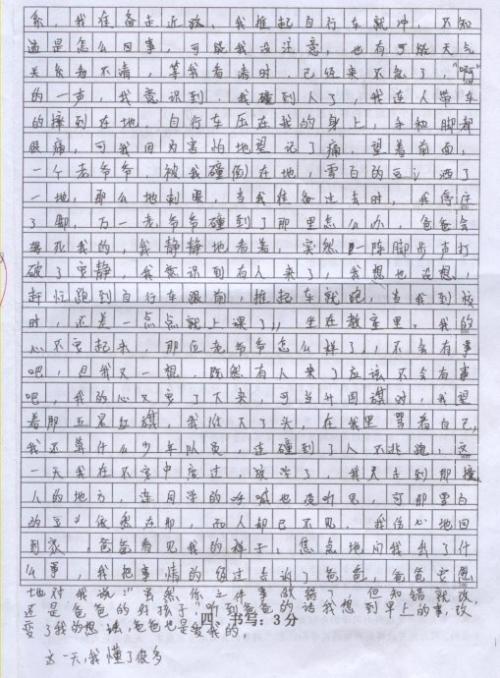 系，我准备走近路，我推起自行车就冲，不知
道是怎么回事，可能我没注意，也有可能天气
关系看不清，等我看清时，已经来不急了，"啊"
的一声，我意识到，我碰到人了，我连人带车
的摔到在地，自行车压在我的身上，手和脚都
很痛，可我因为害怕地忘记了痛，望着前面，
一个老爷爷，被我碰倒在地，雪白的豆 洒了
一地，那么地刺眼，当我准备过去时，我停住
了脚，万一老爷爷碰到了那里怎么办，爸爸会
我的，我静静地看着，突然，一阵脚步声打
破了安静，我意识到有人来了，我想也没想，
赶忙跑到自行车跟前，推起车就跑，当我到校
时，还差一点点就上课了，坐在教室里，我的
心不安起来，那位老爷爷怎么样了，不会有事
吧，但我又一想，既然有人来了应该不会有事
吧，我的心又安了下来，可当升国旗时，我望
着那五星红旗，我低下了头，在我里骂着自己，
我还算什么少年队员，连碰到了人不扶跑，这
一天我在不安中度过，放学了，我又去到那撞
人的地方，连同学的呼喊也没听见，可那雪白
的豆 依然在那，而人却已不见，我 心地回
到家，爸爸看见我的样子，焦急地问我出了什
么事，我把事情的经过告诉了爸爸，爸爸安慰
地对我说："虽然你这件事做错了，但知错就改，
还是爸爸的好孩子"听到爸爸的话我想到早上的事，改
变了我的想法，爸爸也是爱我的，
四、书写：3分
这一天，我懂了很多